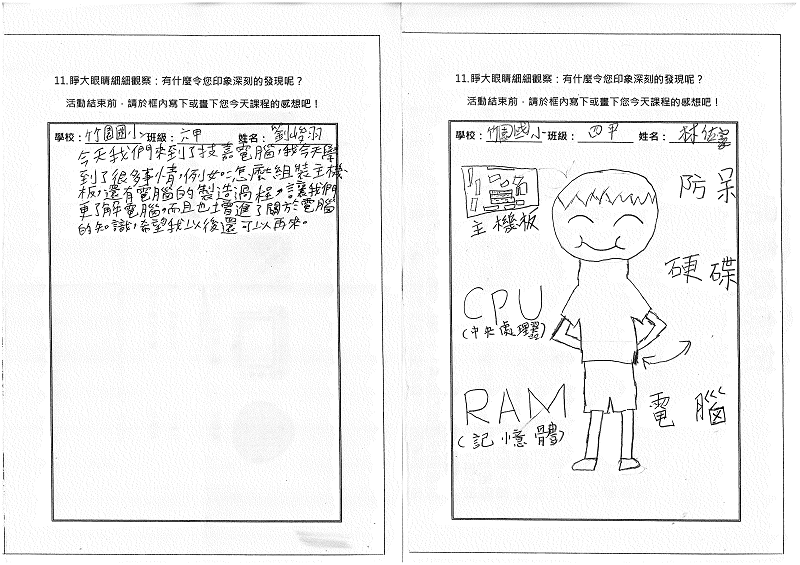 11.睜大眼睛細細觀察：有什麼令您印象深刻的發現呢？
活動結束前，請於框內寫下或畫下您今天課程的感想吧！
學校：竹園國小 班級：六甲 姓名：劉怡羽
今天我們來到了技嘉電腦，我今天學
到了很多事情，例如：怎麼組裝主機
板，還有電腦的製造過程，讓我們
更了解電腦，而且也增進了關於電腦
的知識，希望我以後還可以再來。
11.睜大眼睛細細觀察：有什麼令您印象深刻的發現呢？
活動結束前，請於框內寫下或畫下您今天課程的感想吧！
學校：竹園國小 班級：四甲 姓名：林
主機板
防呆
硬碟
CPU
(中央處理器)
RAM
(記憶體)
電腦